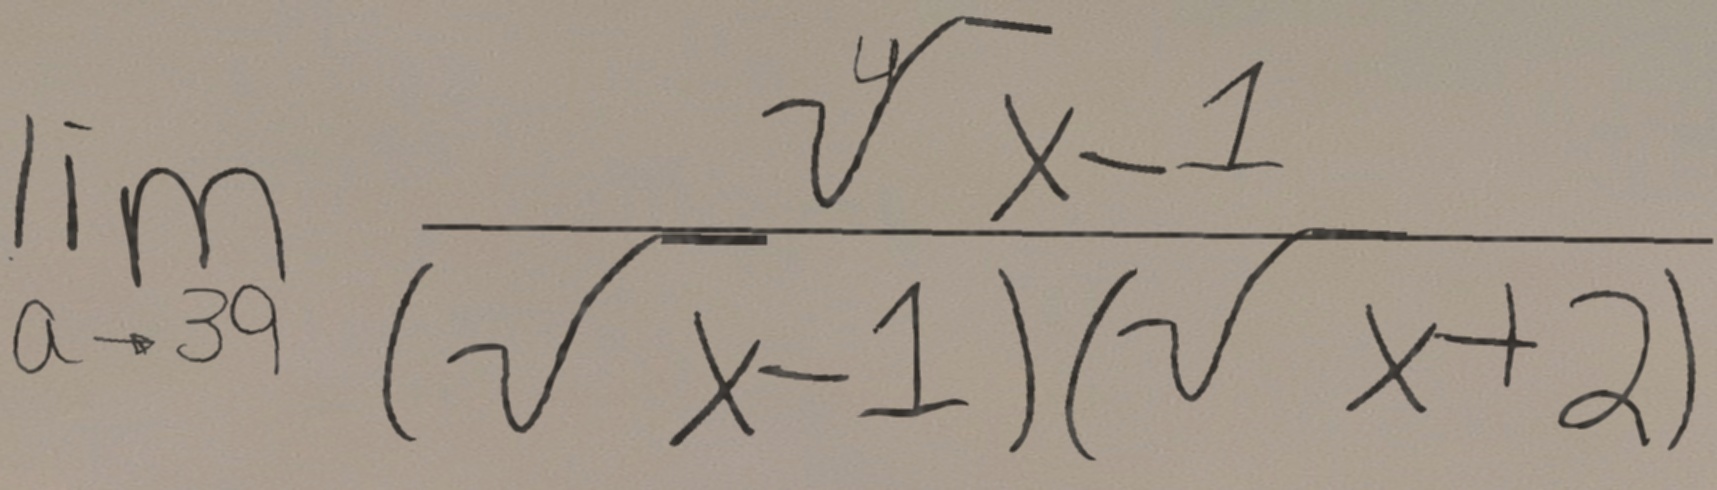 lim a→39 \frac{\sqrt[4]{x}-1}{(\sqrt{x}-1)(\sqrt{x}+2)}